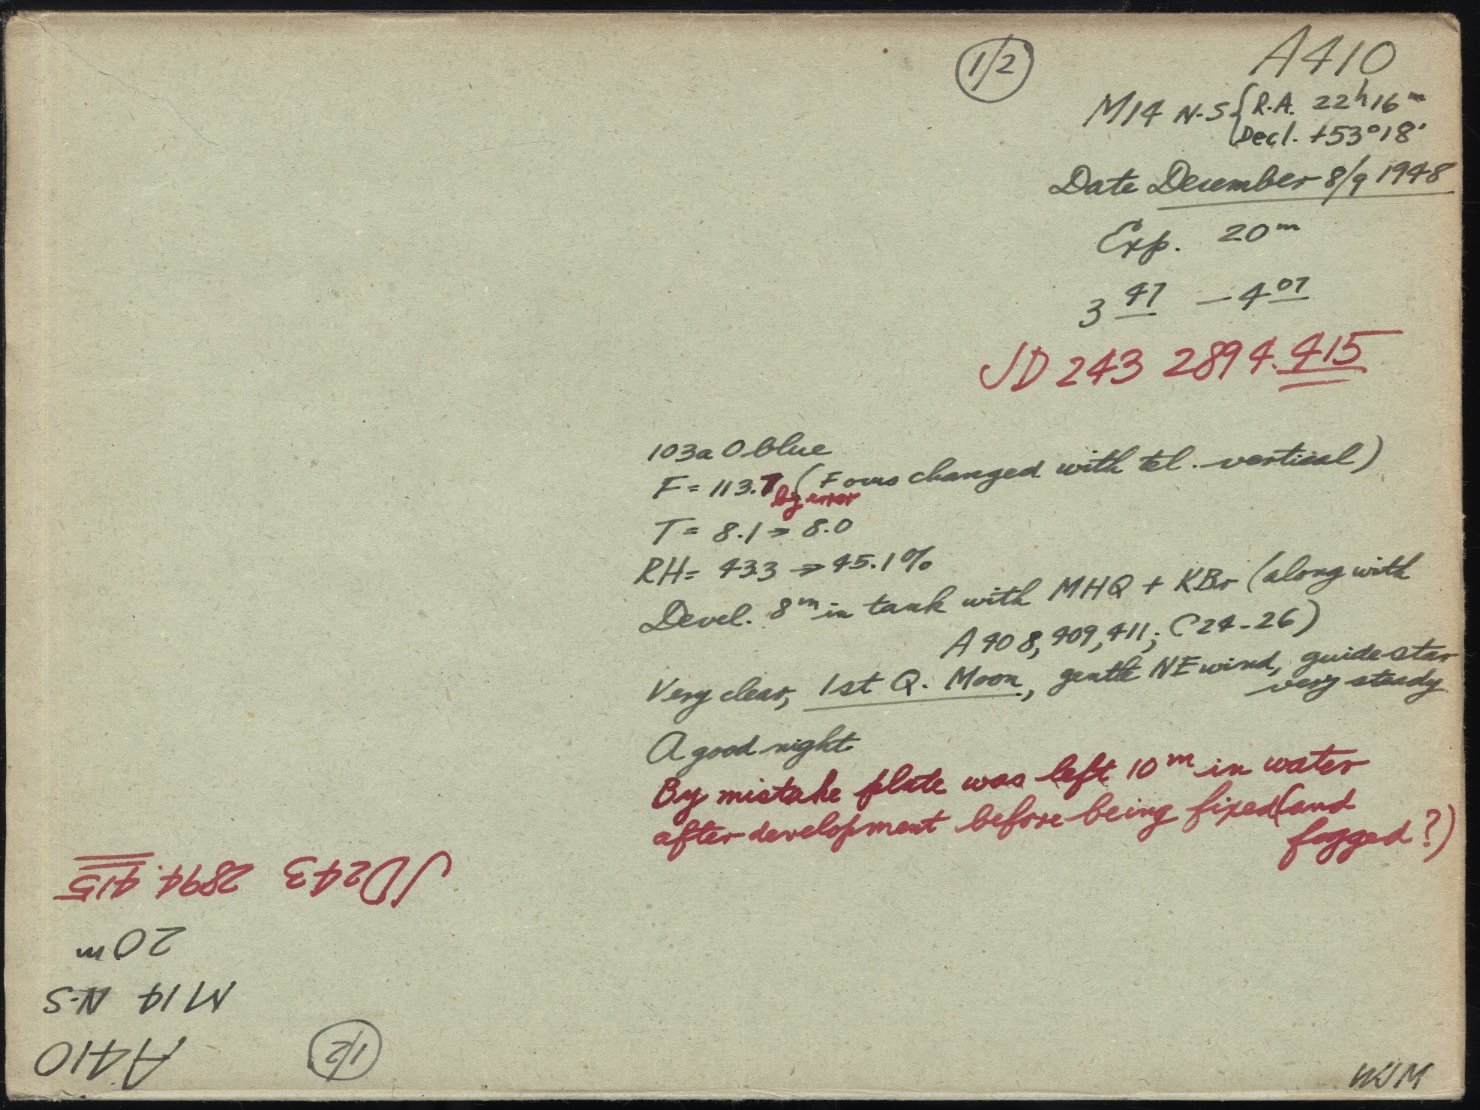 1/2
A410
M14 N-S { R.A. 22h16m
Decl. +53°18'
Date December 8/9 1948
Exp. 20m
3 47 – 4 07
JD 243 2894.415
103a O blue
F = 113.7 (Focus changed with tel. vertical)
by error
T = 8.1 → 8.0
RH = 43.3 → 45.1%
Devel. 8m in tank with MHQ + KBr (along with
A408, 409, 411; C24-26)
Very clear, 1st Q. Moon, gentle NE wind, guide star
very steady
A good night.
By mistake plate was left 10m in water
after development before being fixed (and
fogged?)
WJM
A410
1/2
M14 N-S
20m
JD243 2894.415